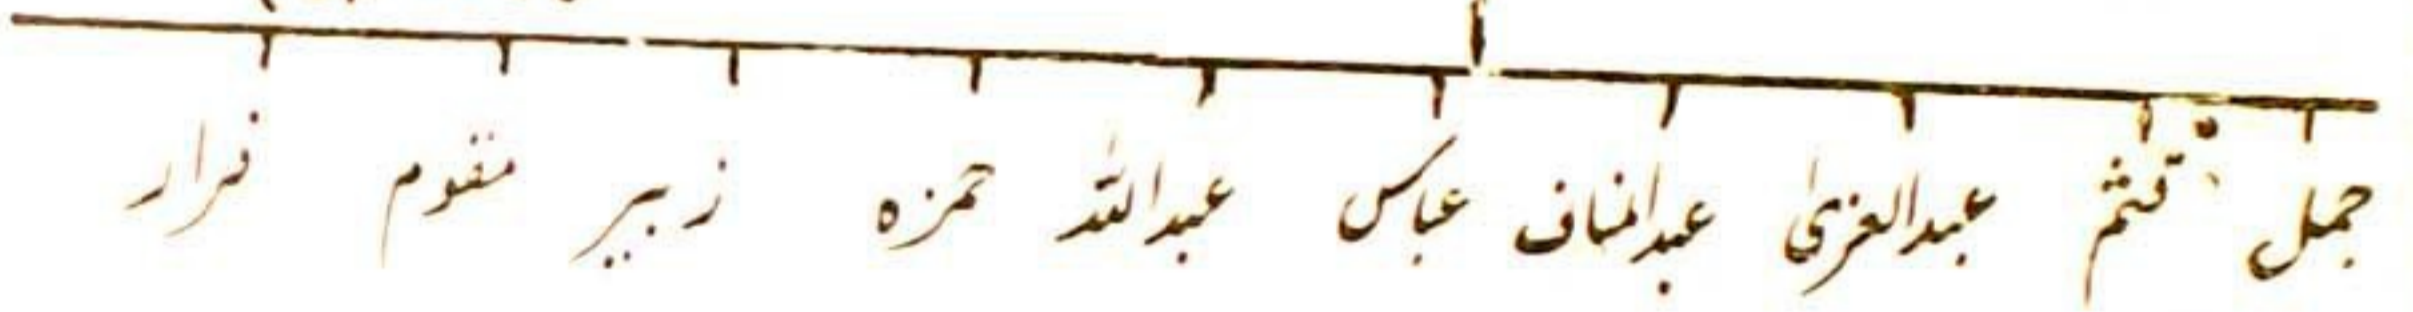 جمل قثم عبدالعزیٰ عبدالمناف عباس عبداللہ حمزہ زبیر مقوم ضرار